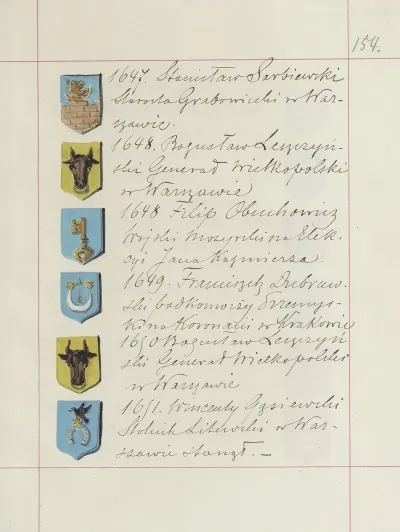 154.
1647. Stanisław Sarbiewski
Starosta Grabowiecki w War-
szawie.
1648. Bogusław Leszczyń-
ski Generał Wielkopolski
w Warszawie
1648 Filip Obuchowicz
Wojski Mozyrski na Elek-
cyi Jana Kazimierza.
1649. Franciszek Dubraw-
ski podkomorzy Przemys-
ki na Koronacii w Krakowie
1650 Bogusław Leszczyń
ski Generał Wielkopolski
w Warszawie
1651. Wincenty Gąsiewski
Stolnik Litewski w War-
szawie